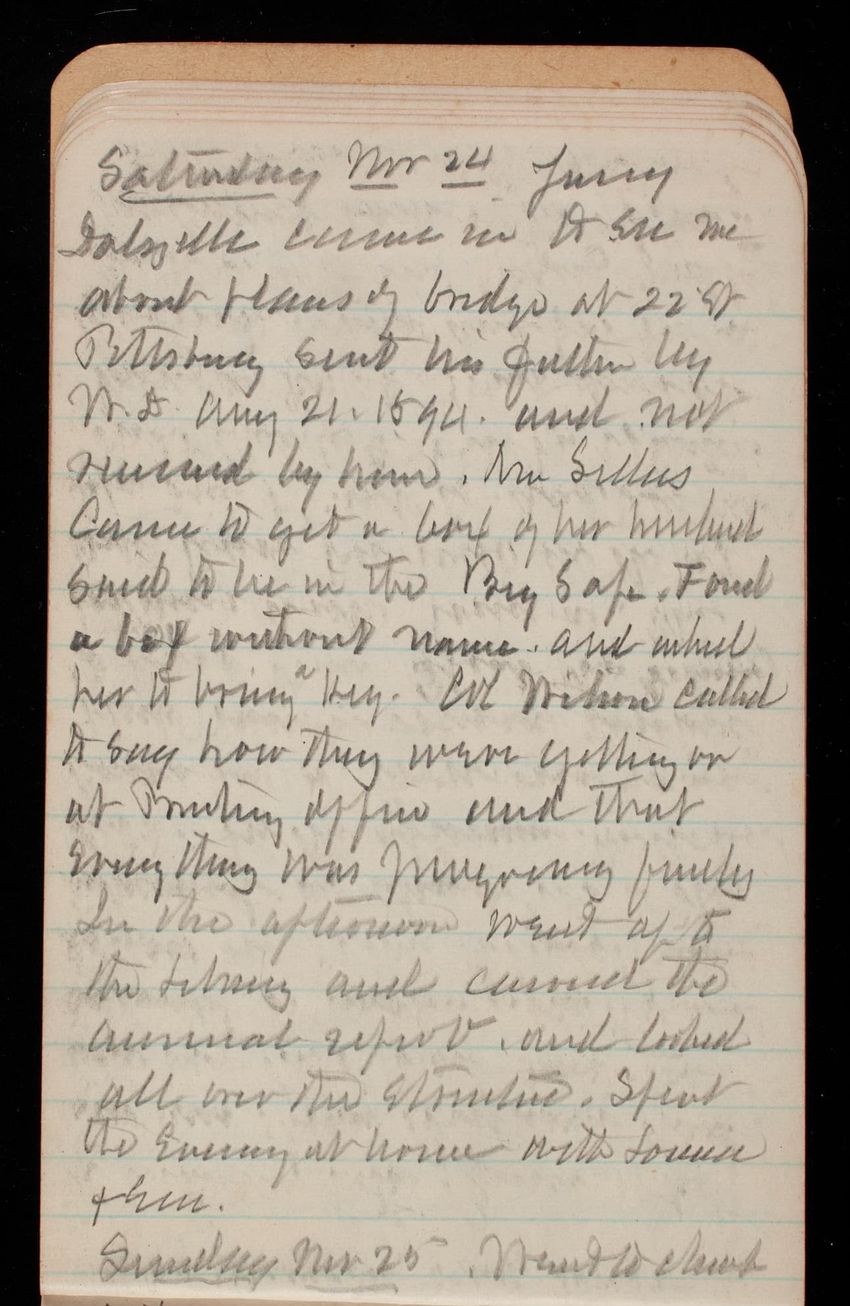 Saturday Nov 24
Dalzelle came in to see me
about plans of bridge at 22 St
Pittsburg sent his father by
W.D. Aug 21. 1894. and not
received by him. Mrs
came to get a box of her husband
said to be in the Big Safe. Found
a box without name. and asked
her to bring a key. Col Wilson called
to say how they were getting on
at Printing office and that
Everything was progressing finely
In the afternoon went up to
the Library and carried the
annual report. and looked
all over the structure. Spent
the Evening at home with Louise
Sunday Nov 25. Went to church